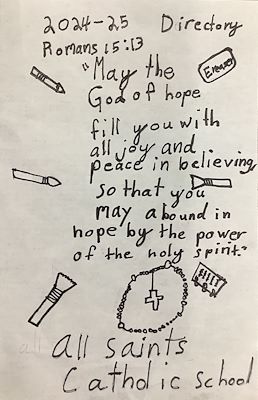 2024-25 Directory
Romans 15:13
"May the
Eraser
God of hope
fill you with
all joy and
peace in believing,
so that you
may abound in
hope by the power
of the holy spirit."
all saints
Catholic school